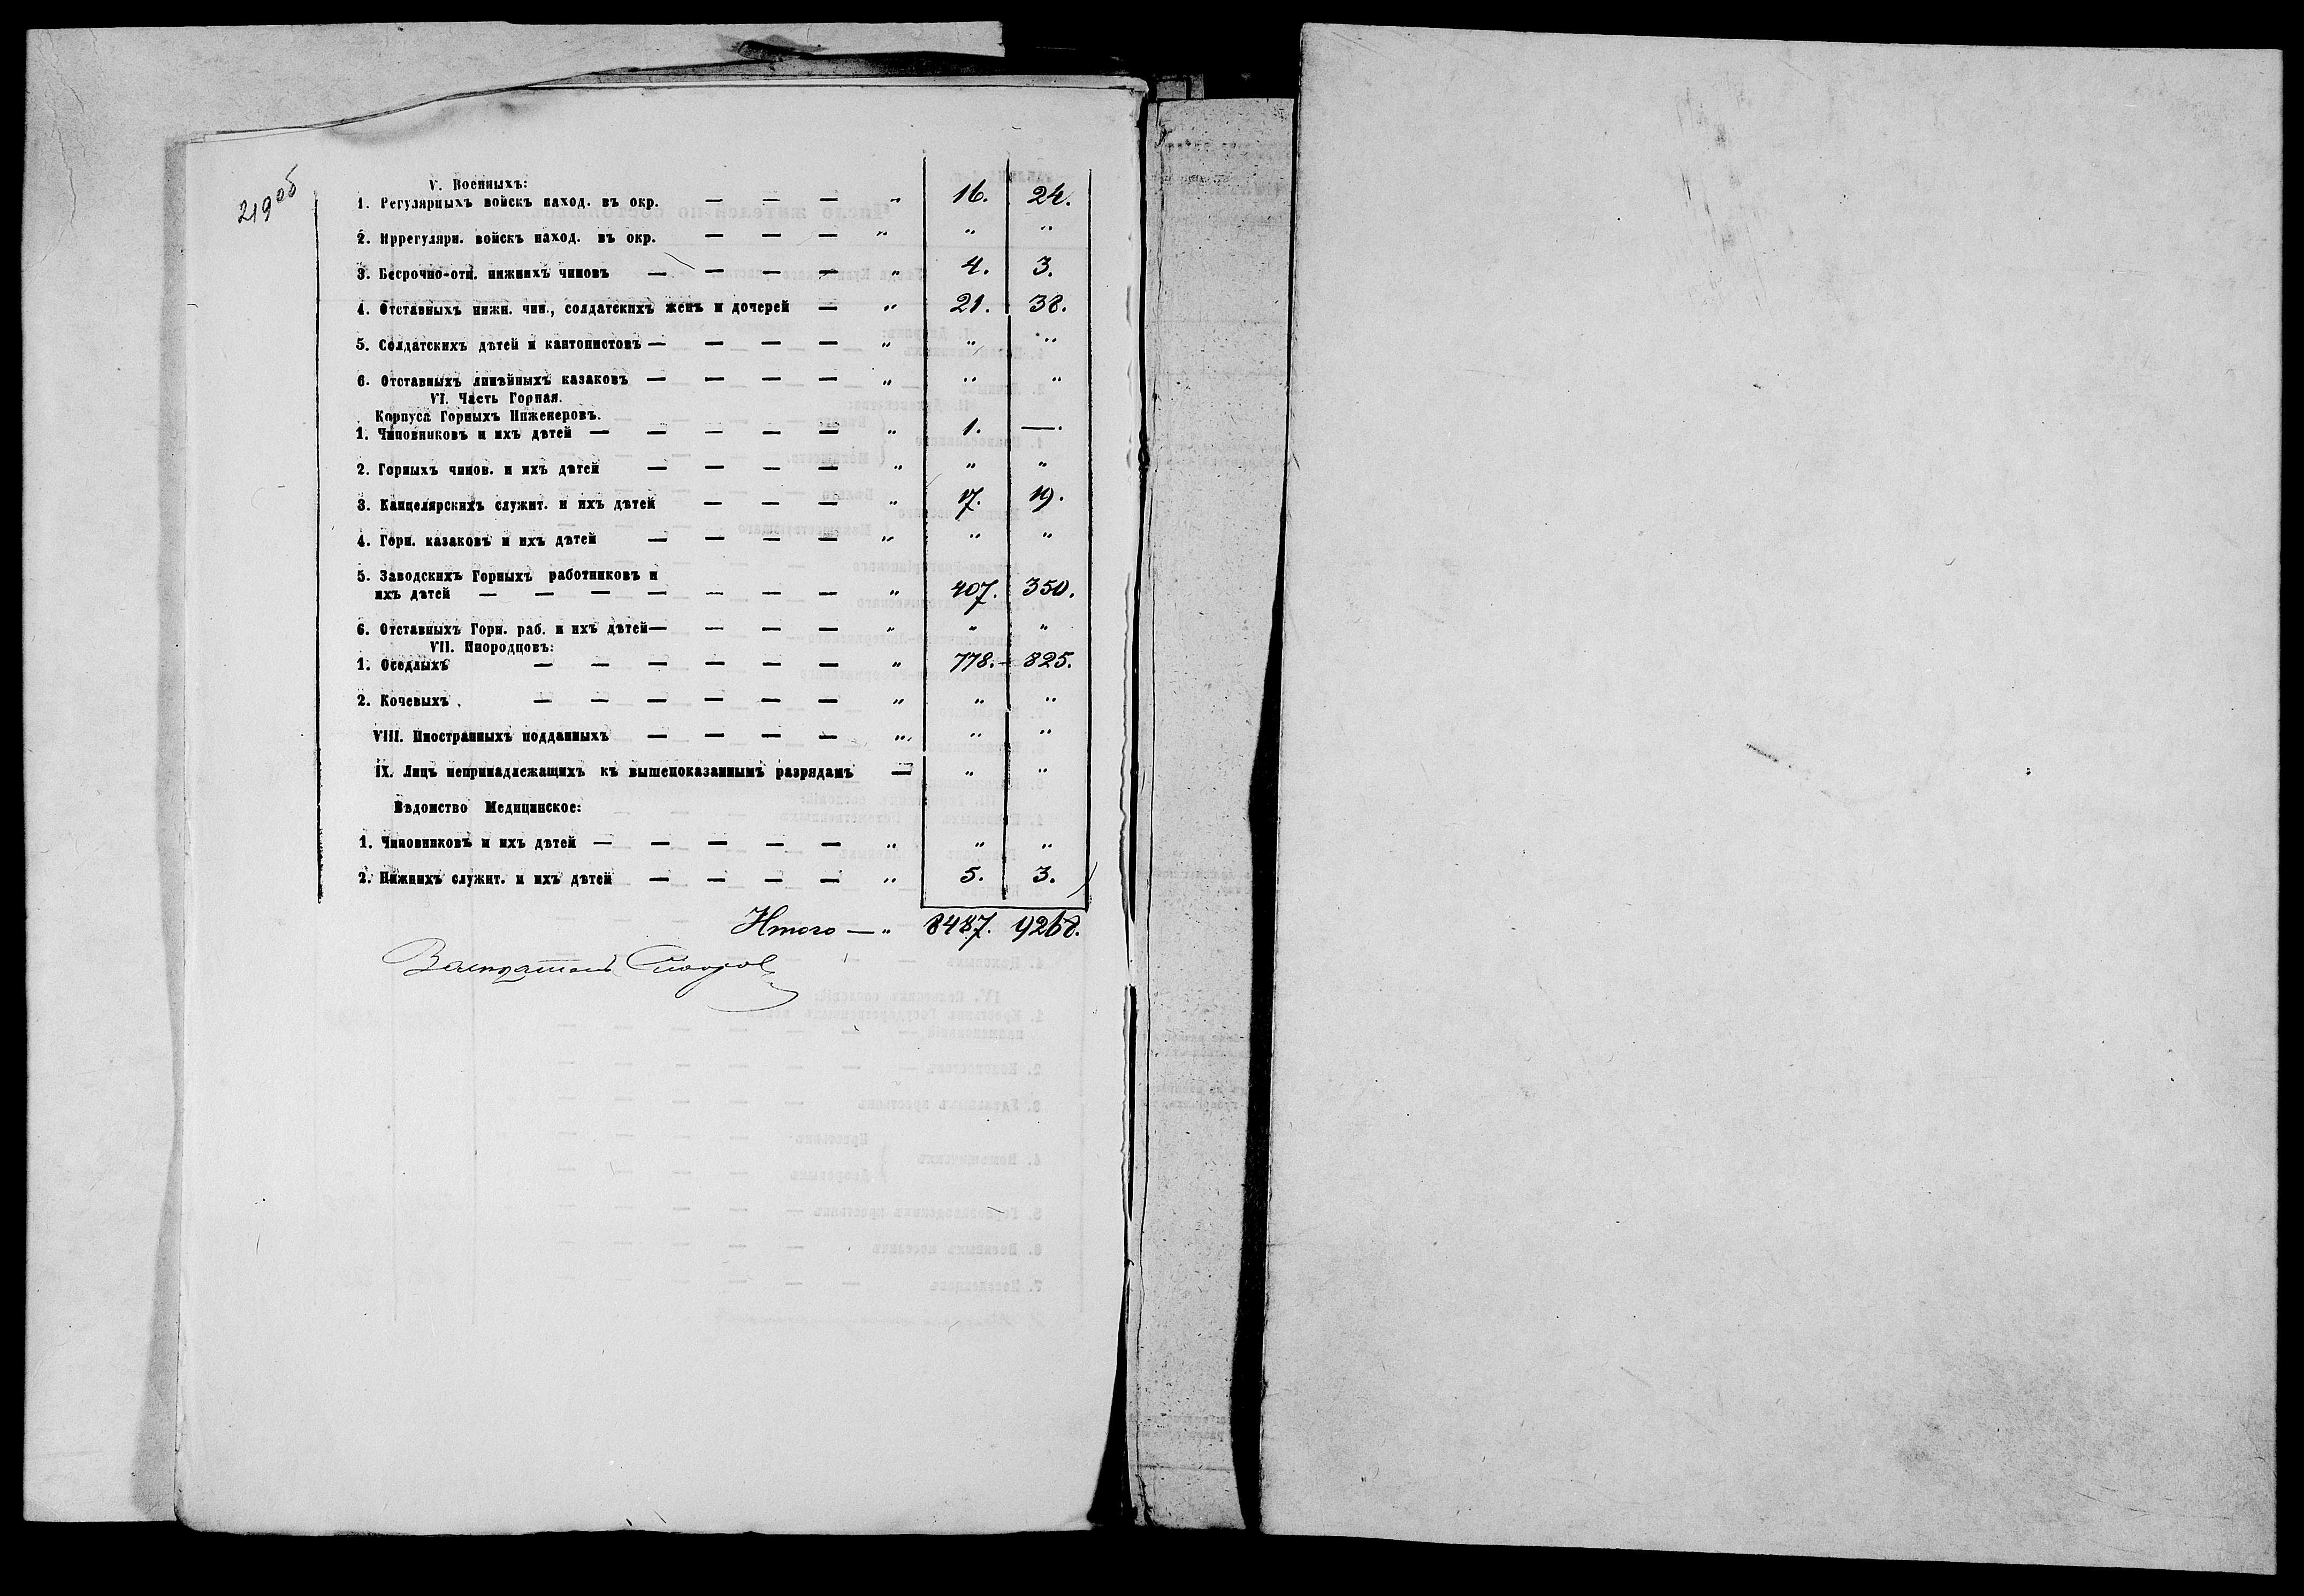 219 об
V. Военныхъ:
1. Регулярныхъ войскъ наход. въ окр. — — — „ 16. 24.
2. Иррегулярн. войскъ наход. въ окр. — — — „ „ „
3. Бесрочно-отп. нижнихъ чиновъ — — — — „ 4. 3.
4. Отставныхъ нижн. чин., солдатскихъ женъ и дочерей — „ 21. 38.
5. Солдатскихъ дѣтей и кантонистовъ — — — — „ „ „
6. Отставныхъ линѣйныхъ казаковъ — — — — „ „ „
VI. Часть Горная.
Корпуса Горныхъ Инженеровъ.
1. Чиновниковъ и ихъ дѣтей — — — — — „ 1. —.
2. Горныхъ чинов. и ихъ дѣтей — — — — „ „ „
3. Канцелярскихъ служит. и ихъ дѣтей — — — „ 17. 19.
4. Горн. казаковъ и ихъ дѣтей — — — — „ „ „
5. Заводскихъ Горныхъ работниковъ и
ихъ дѣтей — — — — — — — „ 407. 350.
6. Отставныхъ Горн. раб. и ихъ дѣтей — — — — „ „ „
VII. Инородцовъ:
1. Оседлыхъ — — — — — — „ 778. 825.
2. Кочевыхъ — — — — — — „ „ „
VIII. Иностранныхъ подданныхъ — — — — „ „ „
IX. Лицъ непринадлежащихъ къ вышепоказаннымъ разрядамъ — „ „
Вѣдомство Медицинское:
1. Чиновниковъ и ихъ дѣтей — — — — — „ „ „
2. Нижнихъ служит. и ихъ дѣтей — — — — „ 5. 3.
Итого — „ 8487. 9268.